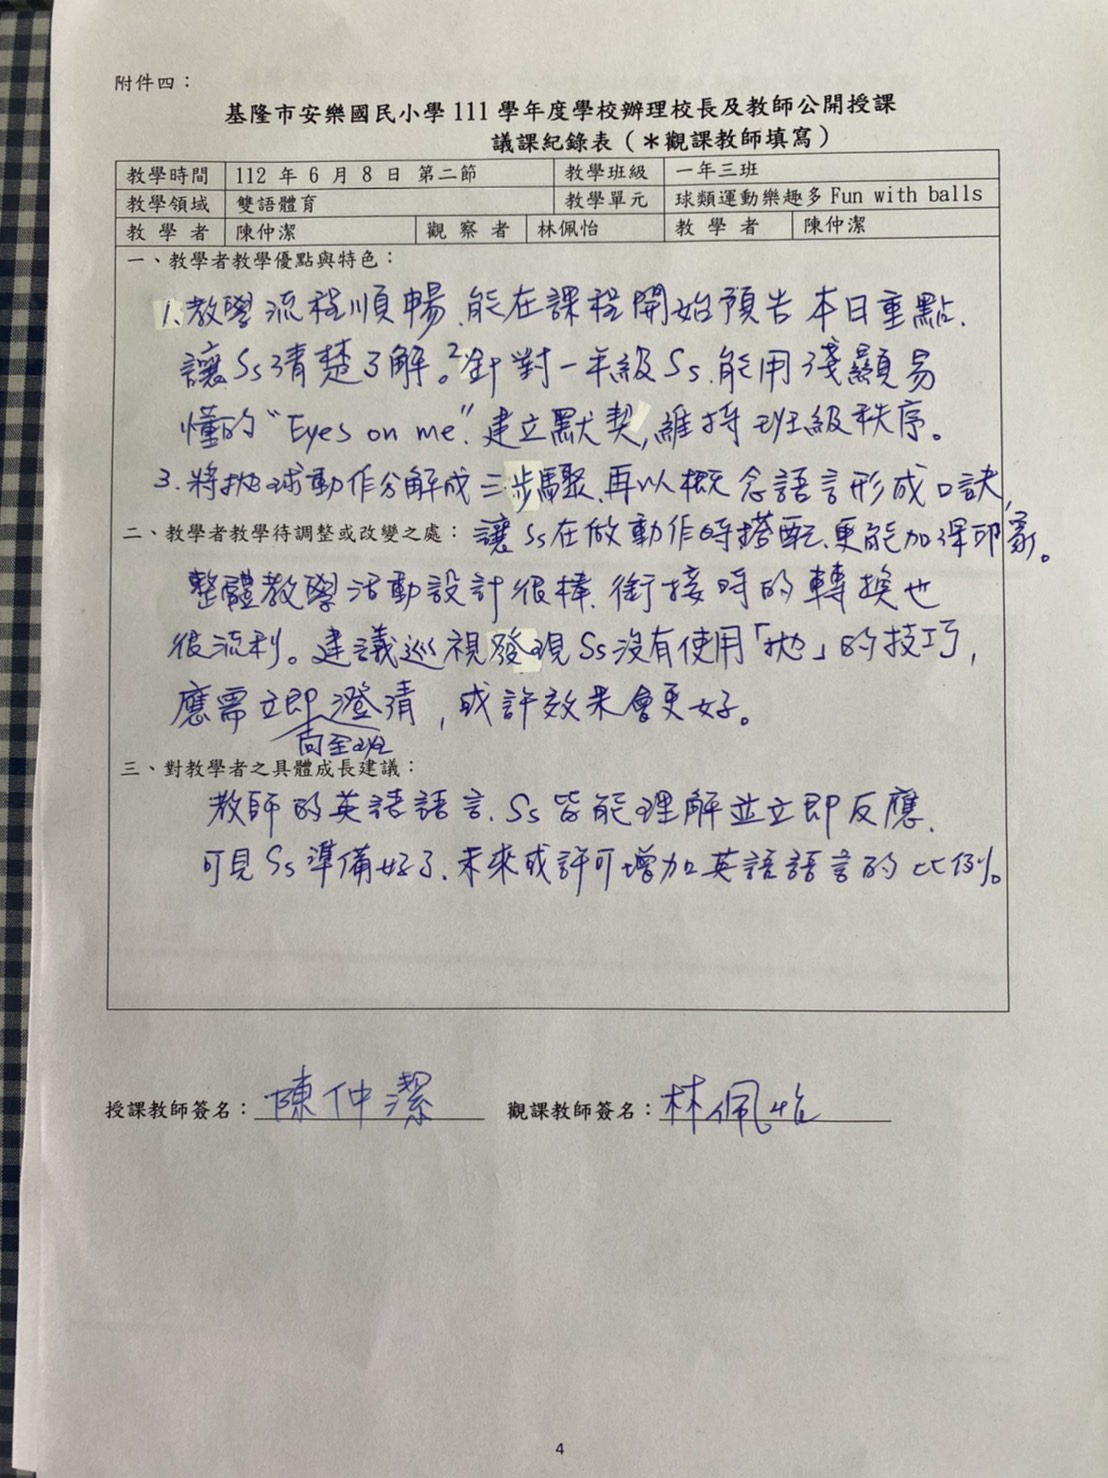 附件四：
基隆市安樂國民小學 111 學年度學校辦理校長及教師公開授課
議課紀錄表（＊觀課教師填寫）
教學時間 112 年 6 月 8 日 第二節 教學班級 一年三班
教學領域 雙語體育 教學單元 球類運動樂趣多 Fun with balls
教學者 陳仲潔 觀察者 林佩怡 教學者 陳仲潔
一、教學者教學優點與特色：
1.教學流程順暢、能在課程開始預告本日重點、
讓Ss清楚了解。2.針對一年級Ss、能用淺顯易
懂的"Eyes on me"建立默契，維持班級秩序。
3.將拋球動作分解成三步驟、再以概念語言形成口訣，
二、教學者教學待調整或改變之處：讓Ss在做動作時搭配、更能加深印象。
整體教學活動設計很棒、銜接時的轉換也
很流利。建議巡視發現Ss沒有使用「拋」的技巧，
應需立即澄清，或許效果會更好。
向全班
三、對教學者之具體成長建議：
教師的英語語言、Ss皆能理解並立即反應、
可見Ss準備好了、未來或許可增加英語語言的比例。
授課教師簽名：陳仲潔 觀課教師簽名：林佩怡
4